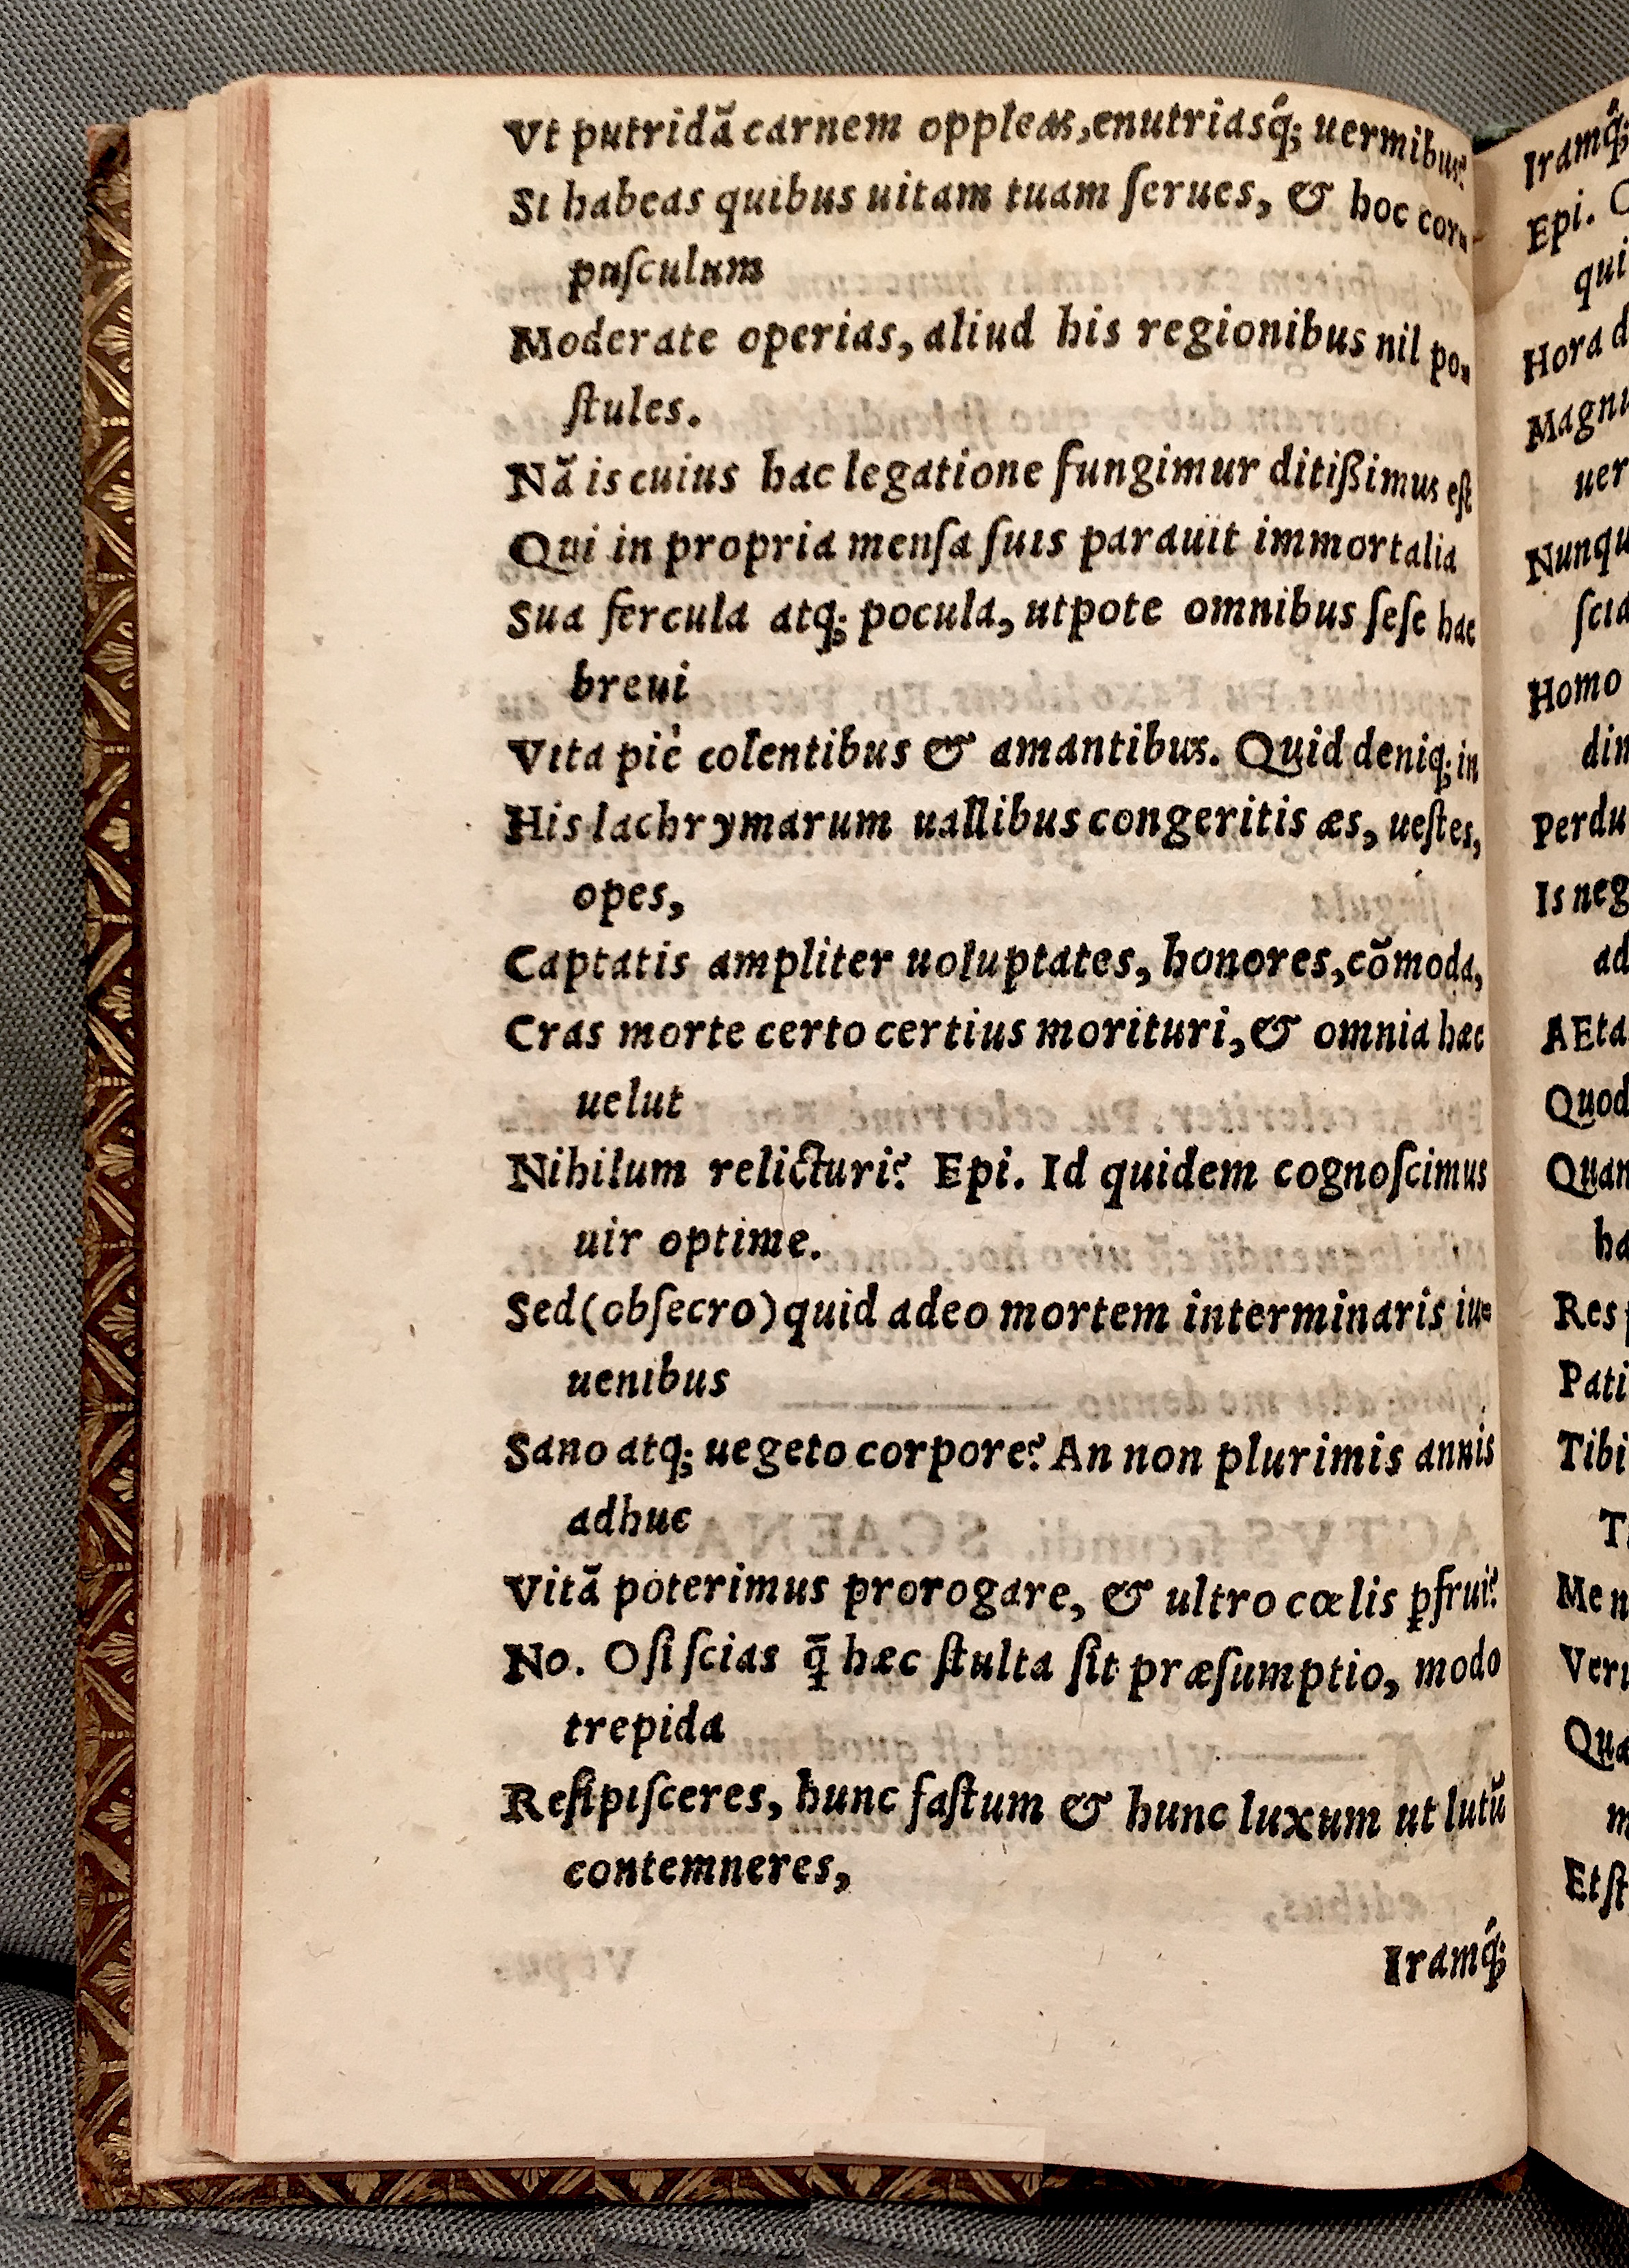 Vt putridã carnem oppleas, enutriasq́; uermibus?
Si habeas quibus uitam tuam ſerues, & hoc cor⸗
puſculum
Moderate operias, aliud his regionibus nil po⸗
ſtules.
Nã is cuius hac legatione fungimur ditißimus eſt
Qui in propria menſa ſuis parauit immortalia
Sua fercula atq; pocula, utpote omnibus ſeſe hac
breui
Vita piè colentibus & amantibus. Quid deniq; in
His lachrymarum uallibus congeritis æs, ueſtes,
opes,
Captatis ampliter uoluptates, honores, cõmoda,
Cras morte certo certius morituri, & omnia hæc
uelut
Nihilum relicturi? Epi. Id quidem cognoſcimus
uir optime.
Sed (obſecro) quid adeo mortem interminaris iu⸗
uenibus
Sano atq; uegeto corpore? An non plurimis annis
adhuc
Vitã poterimus prorogare, & ultro cœlis ꝑfrui?
No. O ſi ſcias q̄̃ hæc ſtulta ſit præſumptio, modo
trepida
Reſipiſceres, hunc faſtum & hunc luxum ut lutũ
contemneres,
Iramq́;
Iramq́;
Epi.
qui
Hora d
Magnu
uer
Nunqu
ſcia
Homo
dim
Perdu
Is neg
ad
AEta
Quod
Quan
ha
Res
Pati
Tibi
T
Me n
Veru
Qua
m
Et ſt